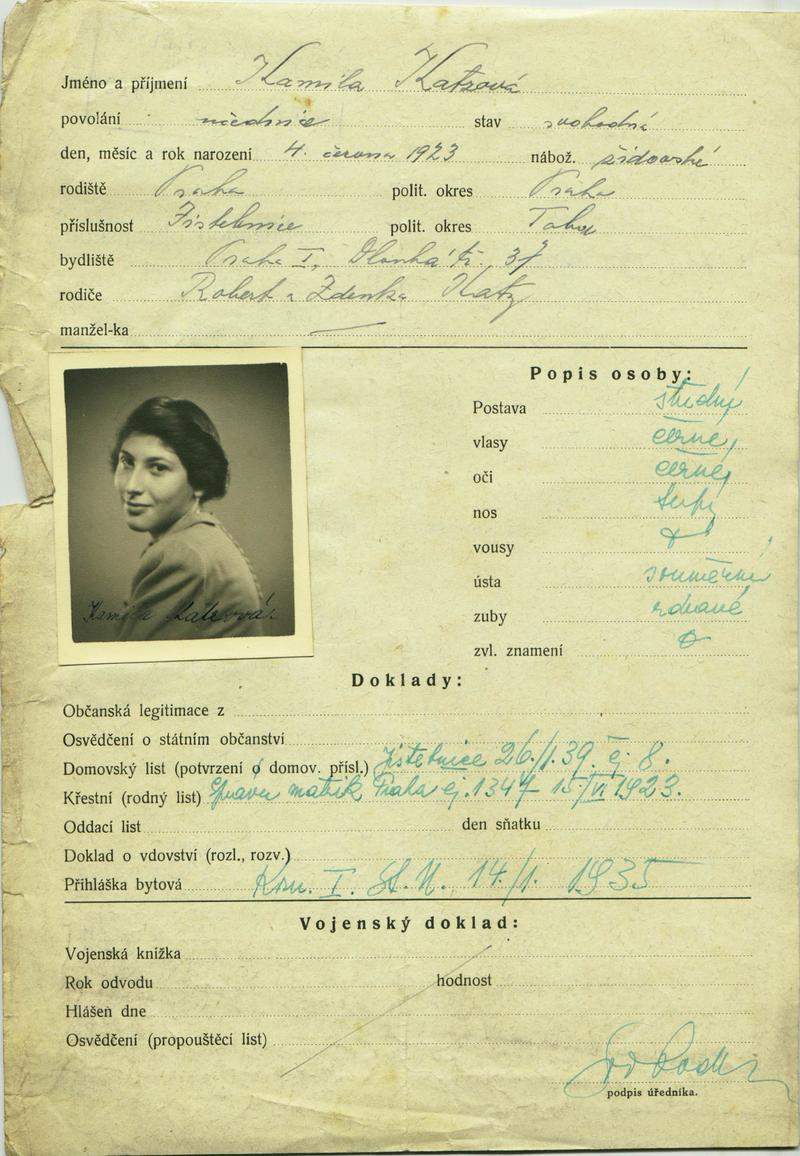 Jméno a příjmení Kamila Katzová
povolání úřednice stav svobodná
den, měsíc a rok narození 4. června 1923 nábož. židovské
rodiště Praha polit. okres Praha
příslušnost Jistebnice polit. okres Tabor
bydliště Praha I, Dlouhá tř. 37
rodiče Robert a Zdenka Katz
manžel-ka
Popis osoby:
Postava střední
vlasy černé,
oči černé,
nos tupý
vousy
ústa souměrné
zuby zdravé
zvl. znamení
Kamila Katzová.
Doklady:
Občanská legitimace z
Osvědčení o státním občanství
Domovský list (potvrzení o domov. přísl.) Jistebnice 26/1.39. čj 8.
Křestní (rodný list) Správa matrik Praha čj. 1347 15/VI 1923.
Oddací list den sňatku
Doklad o vdovství (rozl., rozv.)
Přihláška bytová Kom. I. St. M., 14/1. 1935
Vojenský doklad:
Vojenská knížka
Rok odvodu hodnost
Hlášen dne
Osvědčení (propouštěcí list)
podpis úředníka.